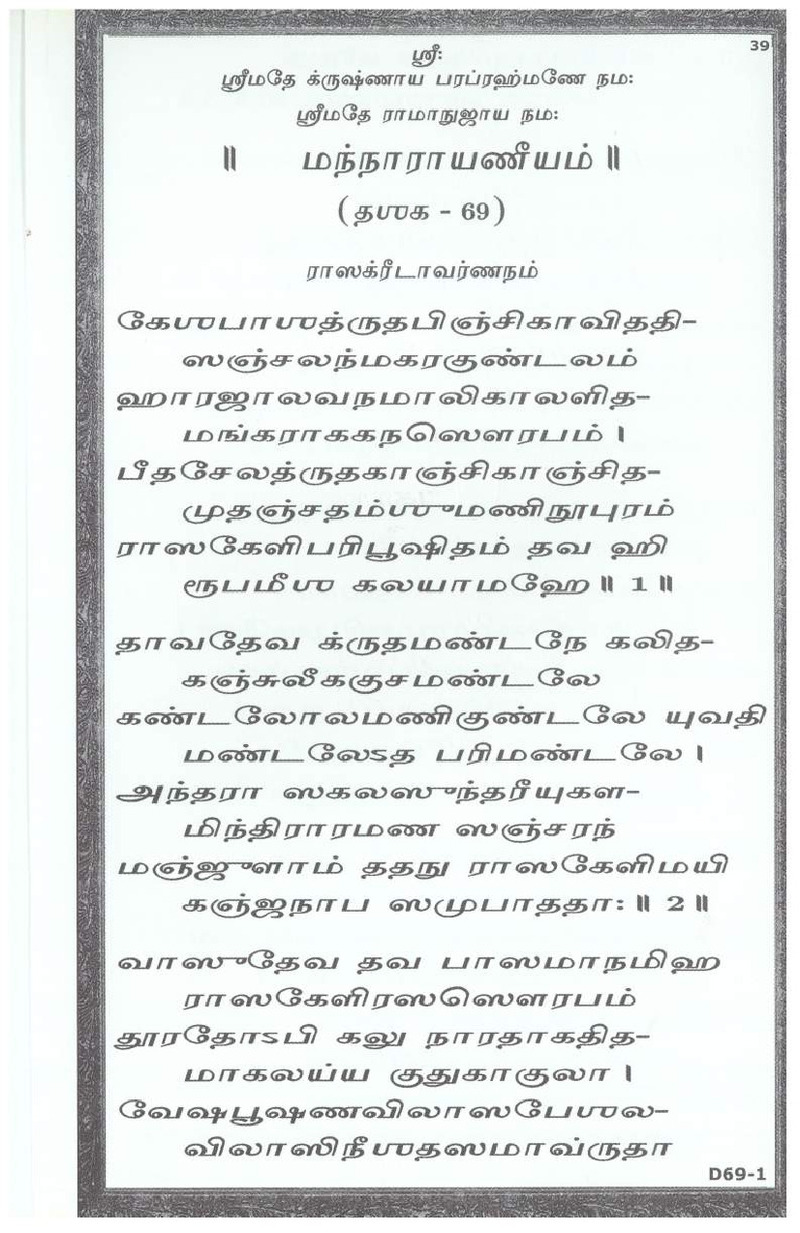 39
ஸ்ரீ:
ஸ்ரீமதே க்ருஷ்ணாய பரப்ரஹ்மணே நம:
ஸ்ரீமதே ராமாநுஜாய நம:
॥ மந்நாராயணீயம் ॥
(தஶக - 69)
ராஸக்ரீடாவர்ணநம்
கேஶபாஶத்ருதபிஞ்சிகாவிததி-
ஸஞ்சலந்மகரகுண்டலம்
ஹாரஜாலவநமாலிகாலளித-
மங்கராககநஸௌரபம் ।
பீதசேலத்ருதகாஞ்சிகாஞ்சித-
முதஞ்சதம்ஶுமணிநூபுரம்
ராஸகேளிபரிபூஷிதம் தவ ஹி
ரூபமீஶ கலயாமஹே ॥ 1 ॥
தாவதேவ க்ருதமண்டநே கலித-
கஞ்சுலீககுசமண்டலே
கண்டலோலமணிகுண்டலே யுவதி
மண்டலேऽத பரிமண்டலே ।
அந்தரா ஸகலஸுந்தரீயுகள-
மிந்திராரமண ஸஞ்சரந்
மஞ்ஜுளாம் ததநு ராஸகேளிமயி
கஞ்ஜநாப ஸமுபாததா: ॥ 2 ॥
வாஸுதேவ தவ பாஸமாநமிஹ
ராஸகேளிரஸஸௌரபம்
தூரதோऽபி கலு நாரதாகதித-
மாகலய்ய குதுகாகுலா ।
வேஷபூஷணவிலாஸபேஶல-
விலாஸிநீஶதஸமாவ்ருதா
D69-1